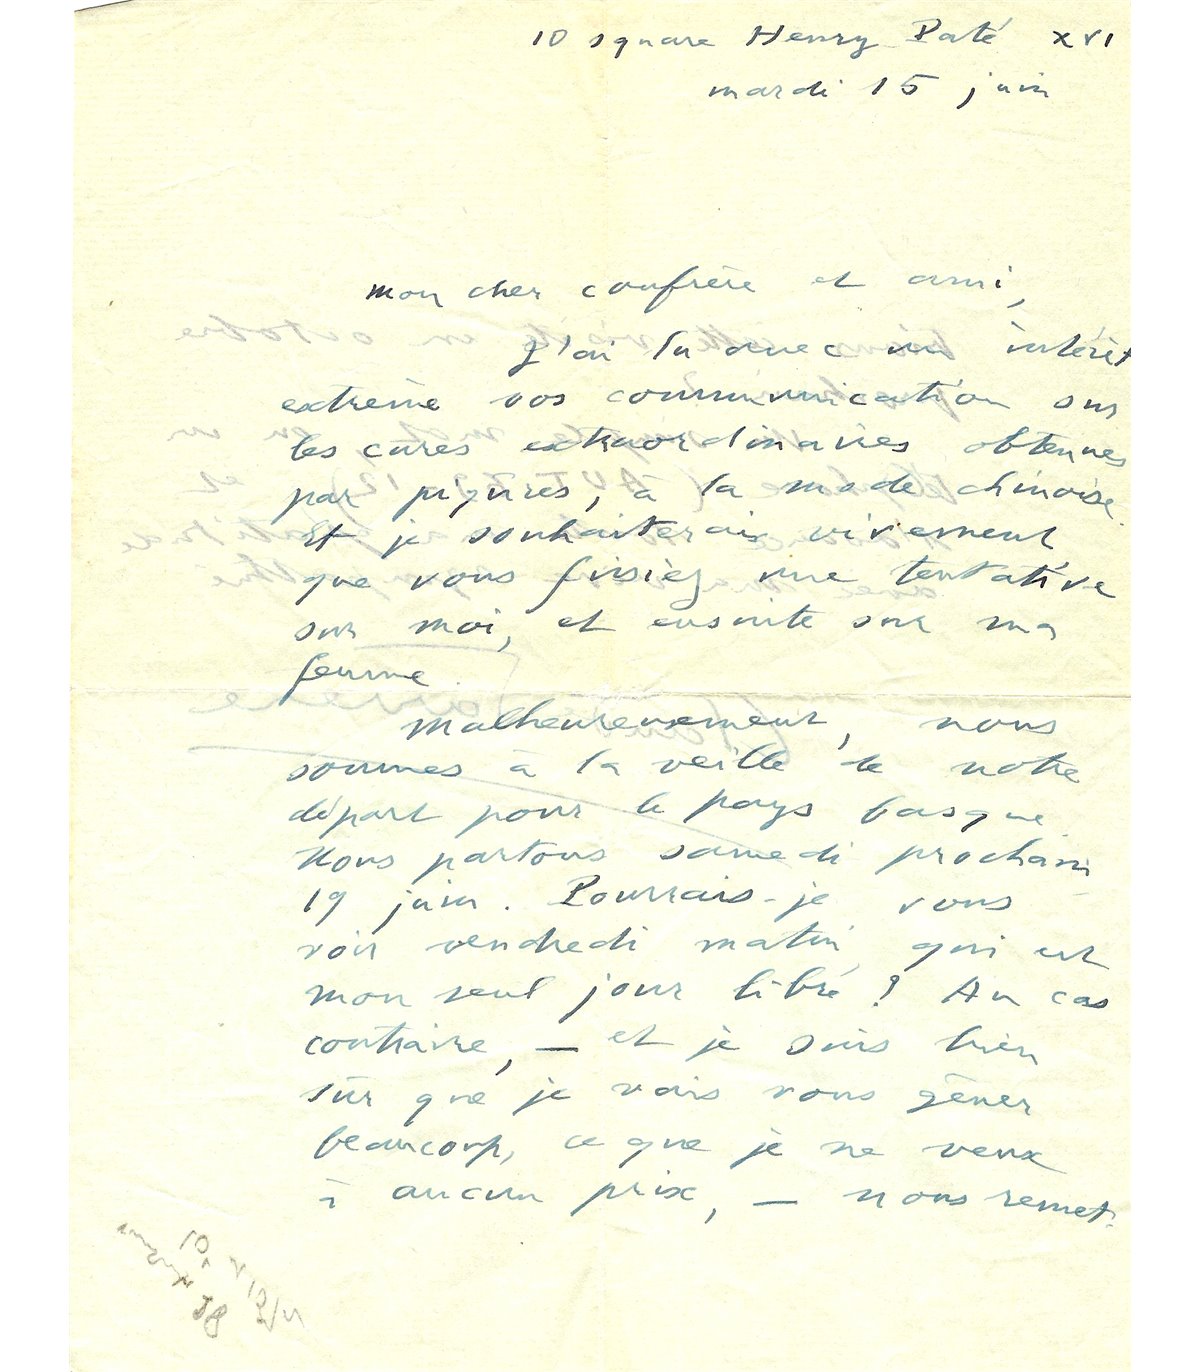 10 square Henry Paté XVI
mardi 15 juin
mon cher confrère et ami,
J'ai lu avec un intérêt
extrème vos communication sur
les cures extraordinaires obtenues
par piqures, à la mode chinoise.
Et je souhaiterais vivement
que vous fissiez une tentative
sur moi, et ensuite sur ma
femme.
Malheureusement, nous
sommes à la veille de notre
départ pour le pays basque.
Nous partons samedi prochain
19 juin. Pourrais-je vous
voir vendredi matin, qui est
mon seul jour libre ? Au cas
contraire, — et je suis bien
sûr que je vais vous gêner
beaucoup, ce que je ne veux
à aucun prix, — nous remet-